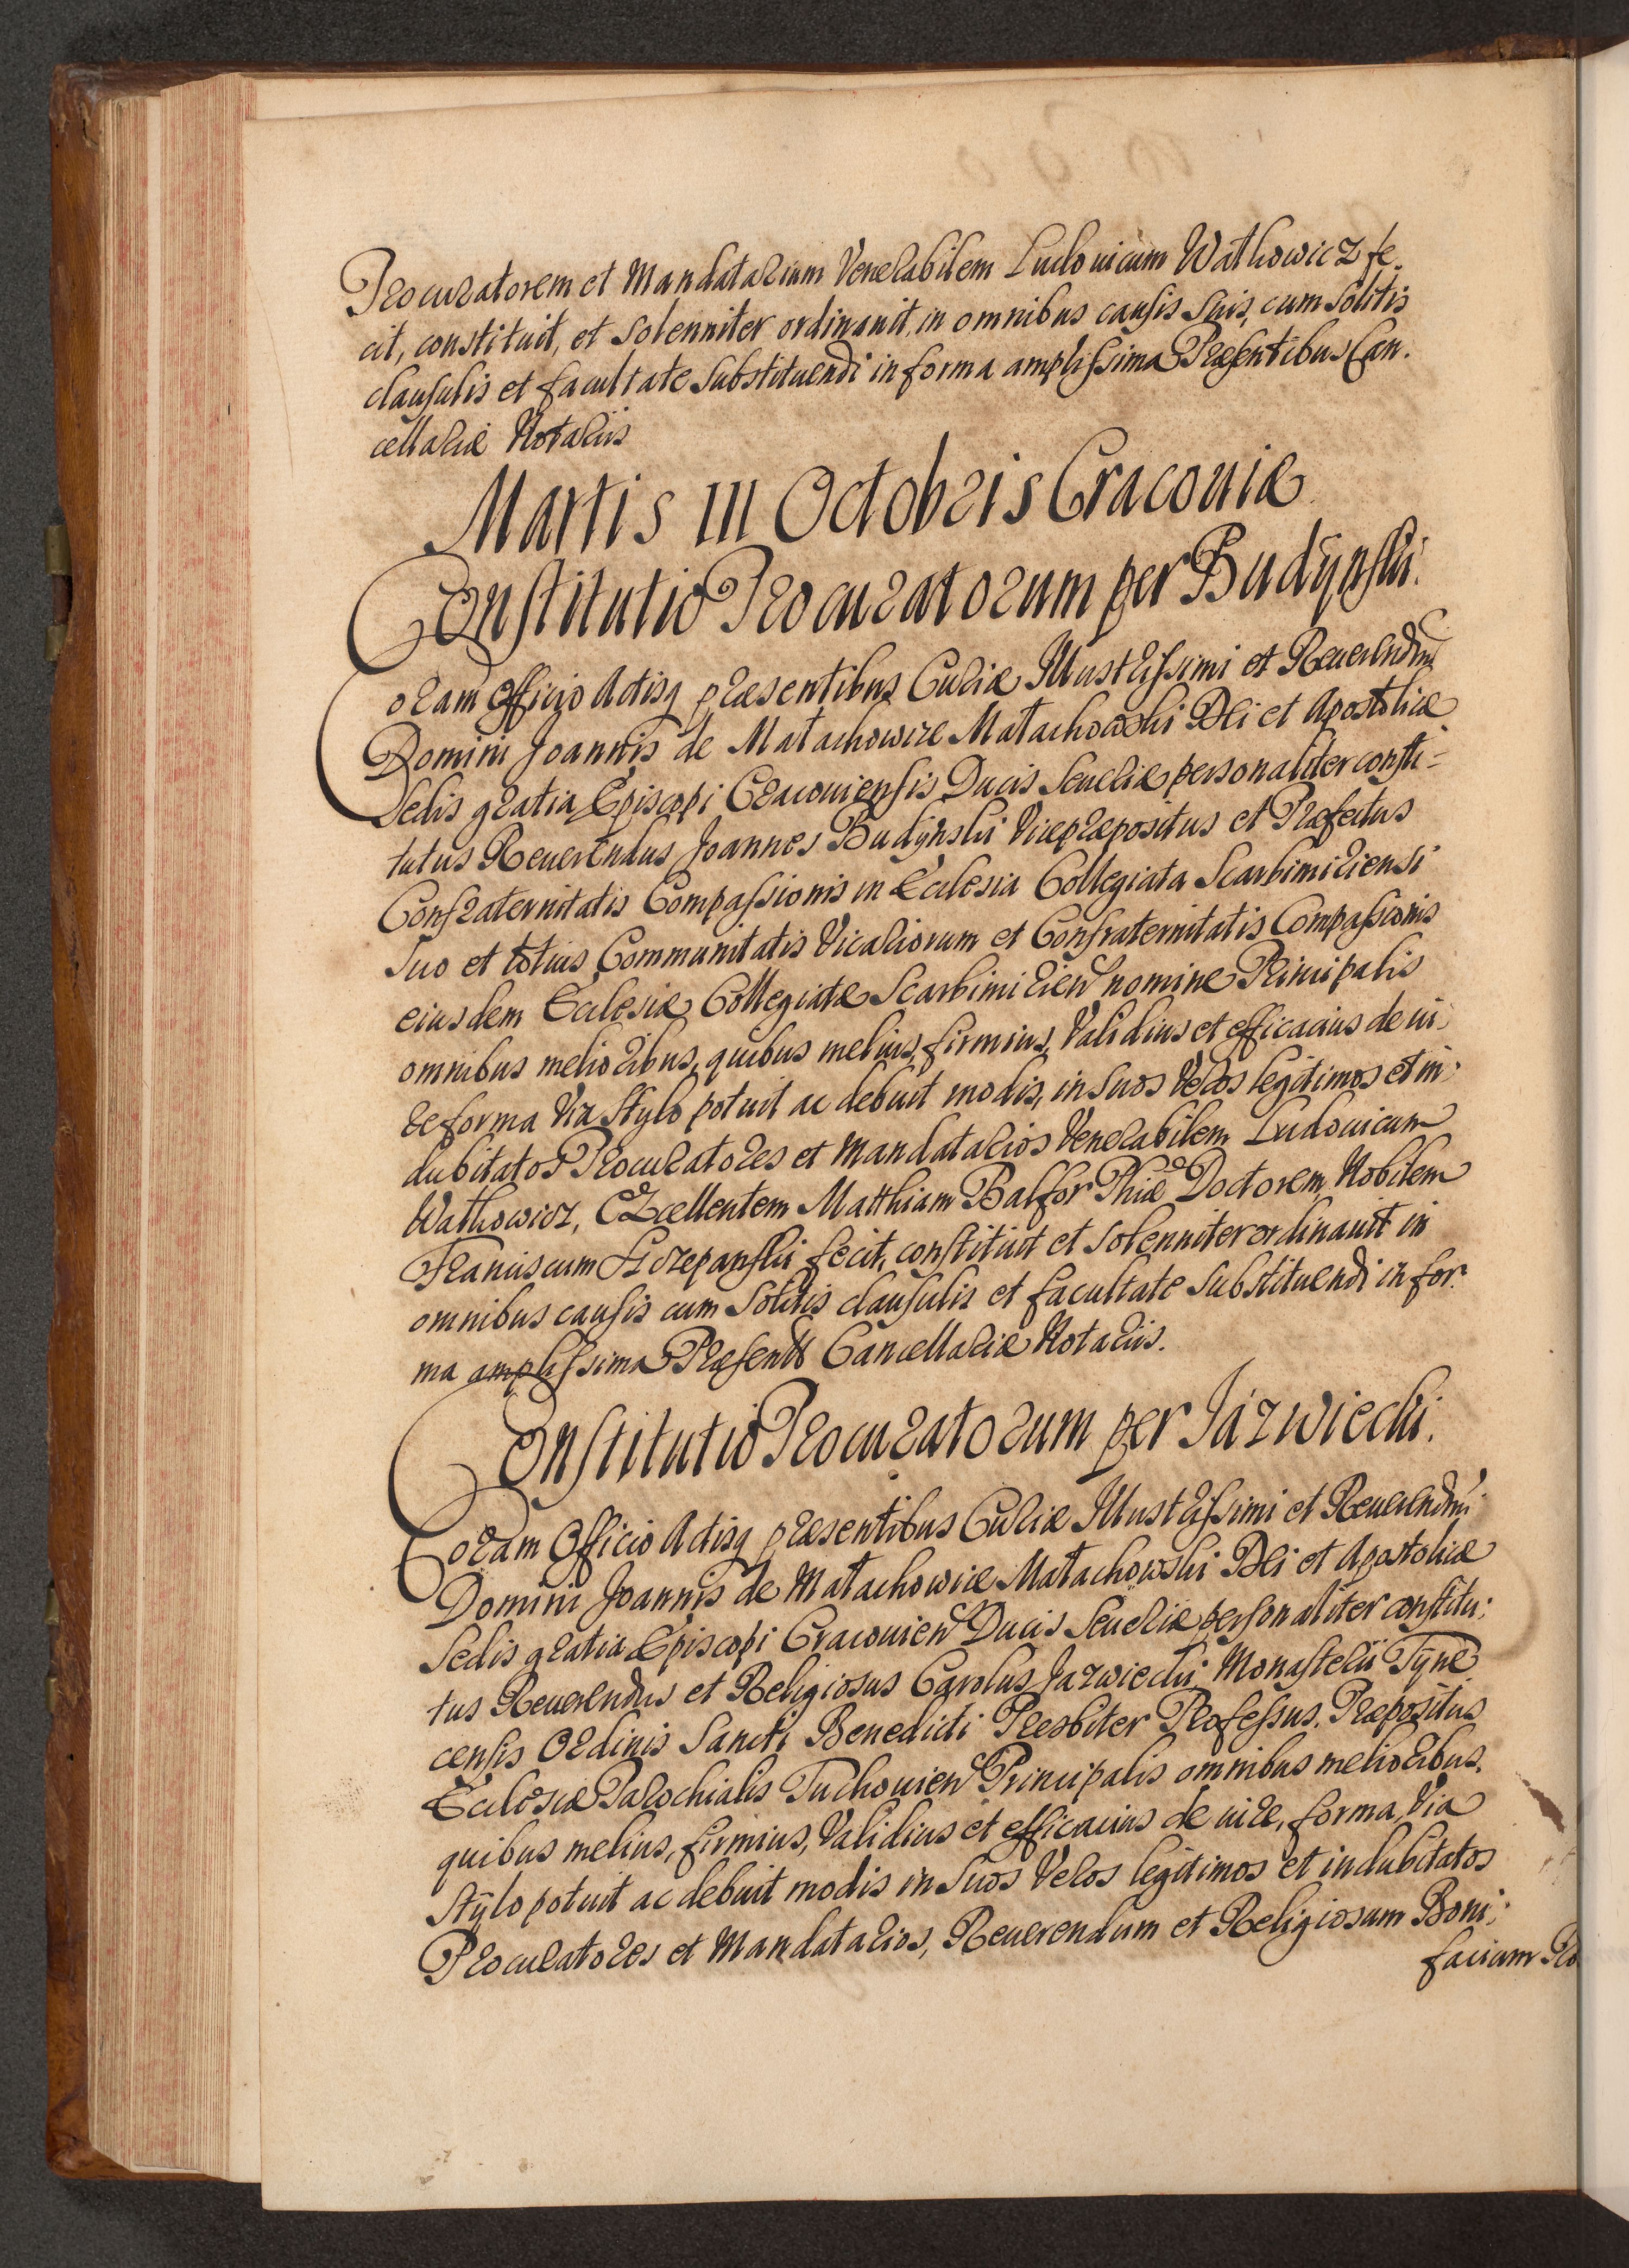 Procuratorem et Mandatarium Venerabilem Ludovicum Wathowicz fe-
cit, constituit, et solenniter ordinauit, in omnibus causis suis, cum solitis
clausulis et facultate substituendi in forma amplissima Præsentibus Can-
cellariæ Notariis
Martis III Octobris Cracouiæ
Constitutio Procuratorum per Budÿnski.
Coram Officio Actisq præsentibus Curiæ Illustrissimi et Reuerendmi
Domini Joannis de Małachowice Małachowski Dei et Apostolicæ
Sedis gratia Episcopi Cracouiensis Ducis Seueriæ personaliter consti-
tutus Reuerendus Joannes Budÿnski Vicepræpositus et Præfectus
Confraternitatis Compassionis in Ecclesia Collegiata Scarbimiriensi
Suo et totius Communitatis Vicariorum et Confraternitatis Compassionis
eiusdem Ecclesiæ Collegiatæ Scarbimirien nomine Principalis
omnibus melioribus, quibus melius, firmius, Validius et efficacius de iu-
re forma Via Stylo potuit ac debuit modis, in suos Veros legitimos et in-
dubitatos Procuratores et Mandatarios Venerabilem Ludouicum
Wathowicz, Excellentem Matthiam Balfor Phiæ Doctorem, Nobilem
Franciscum Szczepanski fecit, constituit et solenniter ordinauit in
omnibus causis cum solitis clausulis et facultate substituendi in for-
ma amplissima Præsentt Cancellariæ Notariis.
Constitutio Procuratorum per Jázwiecki.
Coram Officio Actisq præsentibus Curiæ Illustrissimi et Reuerendmi
Domini Joannis de Małachowice Małachowski Dei et Apostolicæ
Sedis gratia Episcopi Cracouien Ducis Seueriæ personaliter constitu-
tus Reuerendus et Religiosus Carolus Jazwiecki Monasterii Tÿne
censis Ordinis Sancti Benedicti Presbiter Professus. Præpositus
Ecclesiæ Parochialis Tuchouien Principalis omnibus melioribus.
quibus melius, firmius, Validius et efficacius de iure, forma, Via
Stÿlo potuit ac debuit modis in suos Veros legitimos et indubitatos
Procuratores et Mandatarios, Reuerendum et Religiosum Boni-
facium